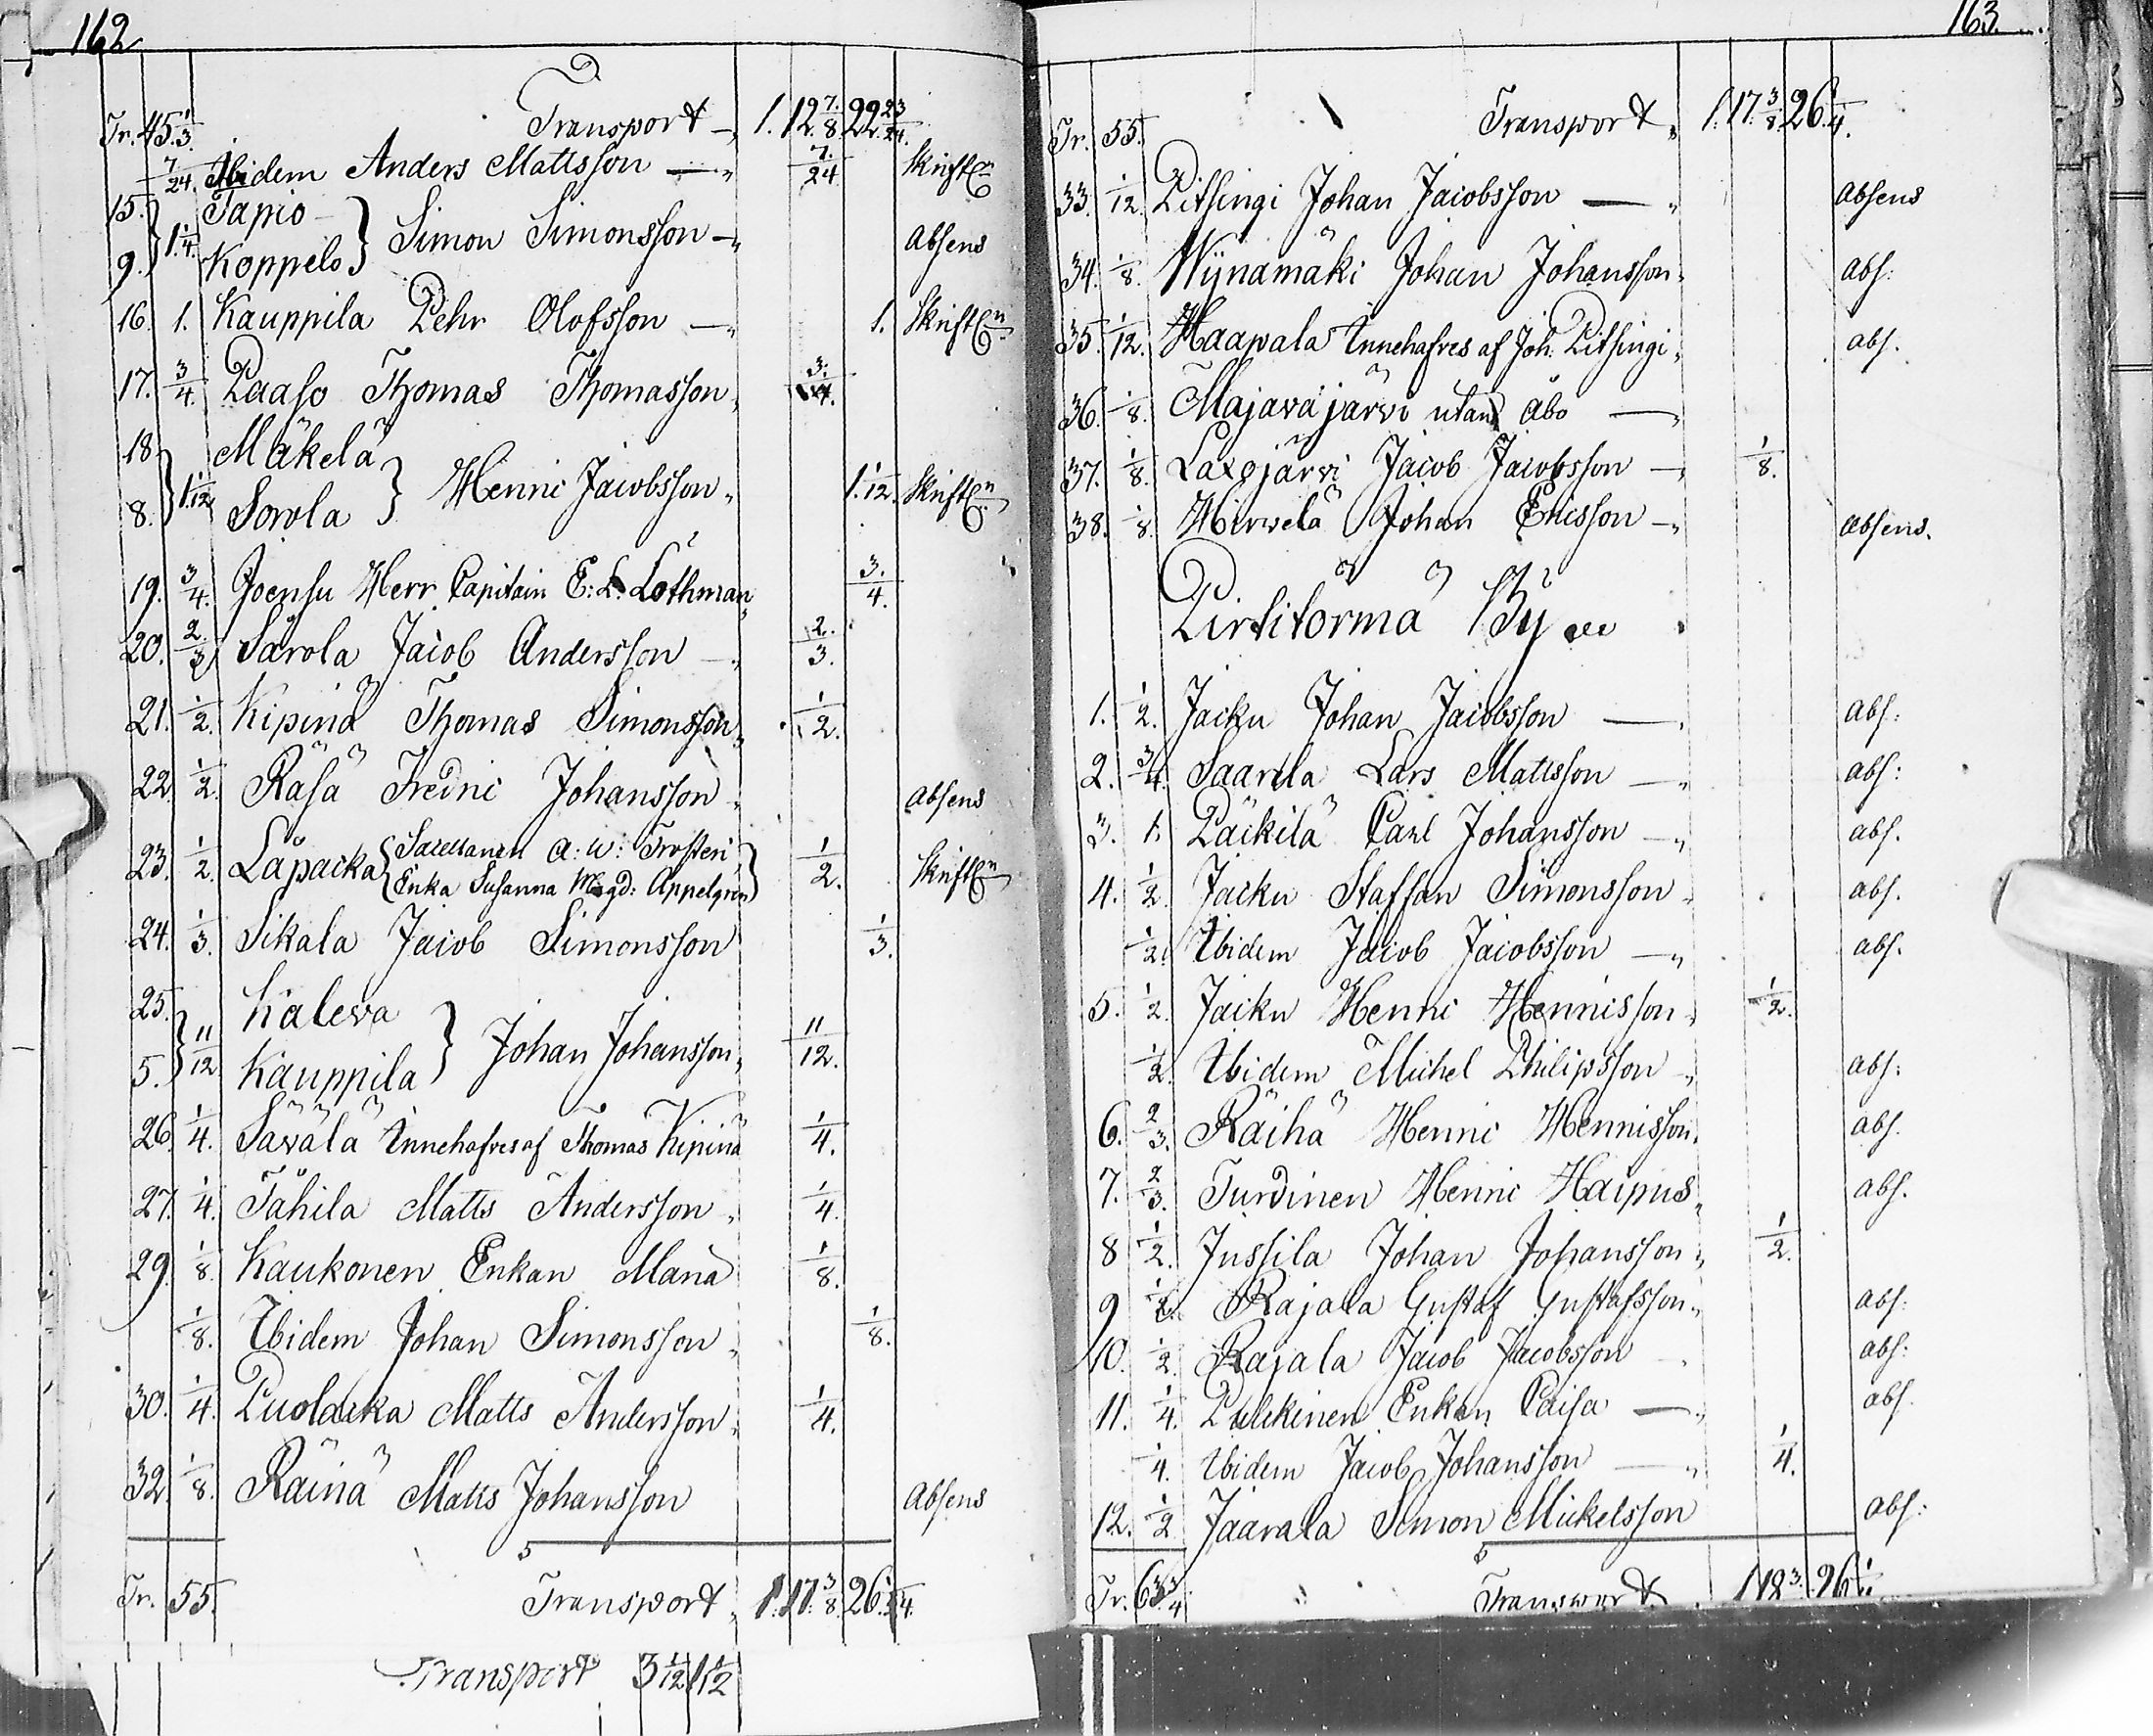 162
Tr. 45 1/3. Transport — 1. 12 7/8. 22 23/24.
7/24. Ibidem Anders Mattsson — 7/24. Skriftl:n
15. Tapio
9. } 1 1/4. Koppelo } Simon Simonsson — Absens
16. 1. Kauppila Pehr Olofsson — 1. Skriftl:n
17. 3/4. Paaso Thomas Thomasson 3/4.
18. Mäkelä
8. } 1 1/12 Sorola } Henric Jacobsson 1. 1/12. Skriftl:n
19. 3/4. Joensu Herr Capitain E: L. Löthman 3/4.
20. 2/3 Sarola Jacob Andersson — 2/3.
21. 1/2. Kipinä Thomas Simonsson 1/2.
22. 1/2. Räsä Fredric Johansson Absens
23. 1/2. Låpacka { A: W: Trosten
Enka Susanna Magd: Appelgren } 1/2. Skriftl:n
24. 1/3. Sikala Jacob Simonsson 1/3.
25. Kaleva
5. } 11/12 Kauppila } Johan Johansson 11/12.
26. 1/4. Säwälä Innehafves af Thomas Kipinä 1/4.
27. 1/4. Tåhila Matts Andersson 1/4.
29. 1/8. Kaukonen Enkan Maria 1/8.
1/8. Ibidem Johan Simonsson 1/8.
30. 1/4. Puolacka Matts Andersson 1/4.
32. 1/8. Räinä Matts Johansson Absens
Tr. 55. Transport 1. 17. 3/8. 26. 1/4.
Transport 3 1/12 1 1/2
163.
Tr. 55. Transport 1. 17. 3/8. 26 1/4.
33. 1/12 Pitsingi Johan Jacobsson — absens
34. 1/8. Wijnamäki Johan Johansson abs:
35. 1/12. Haapala Innehafves af Joh: Pitsingi abs.
36. 1/8. Majavajärvi utan Åbo —
37. 1/8. Laxojärvi Jacob Jacobsson — 1/8.
38. 1/8. Hirvelä Johan Ericsson — absens.
Pirtitörmä By
1. 1/2. Jacku Johan Jacobsson — abs:
2. 3/4. Saarela Lars Mattsson — abs:
3. 1. Päckilä Carl Johansson — abs.
4. 1/2. Jacku Staffan Simonsson abs.
1/2. Ibidem Jacob Jacobsson — abs.
5. 1/2. Jacku Henric Henricsson 1/2.
1/2. Ibidem Michel Philipsson abs:
6. 2/3. Räihä Henric Henricsson abs.
7. 2/3. Turdinen Henric Haipus abs.
8 1/2. Jussila Johan Johansson 1/2.
9 1/2. Rajala Gustaf Gustafsson abs:
10. 1/2. Rajala Jacob Jacobsson abs:
11. 1/4. Pulckinen Enkan Caisa — abs.
1/4. Ibidem Jacob Johansson — 1/4.
12. 1/2. Jaarala Simon Mickelsson abs:
Tr. 63 3/4. Transport 1 18 3. 26 1